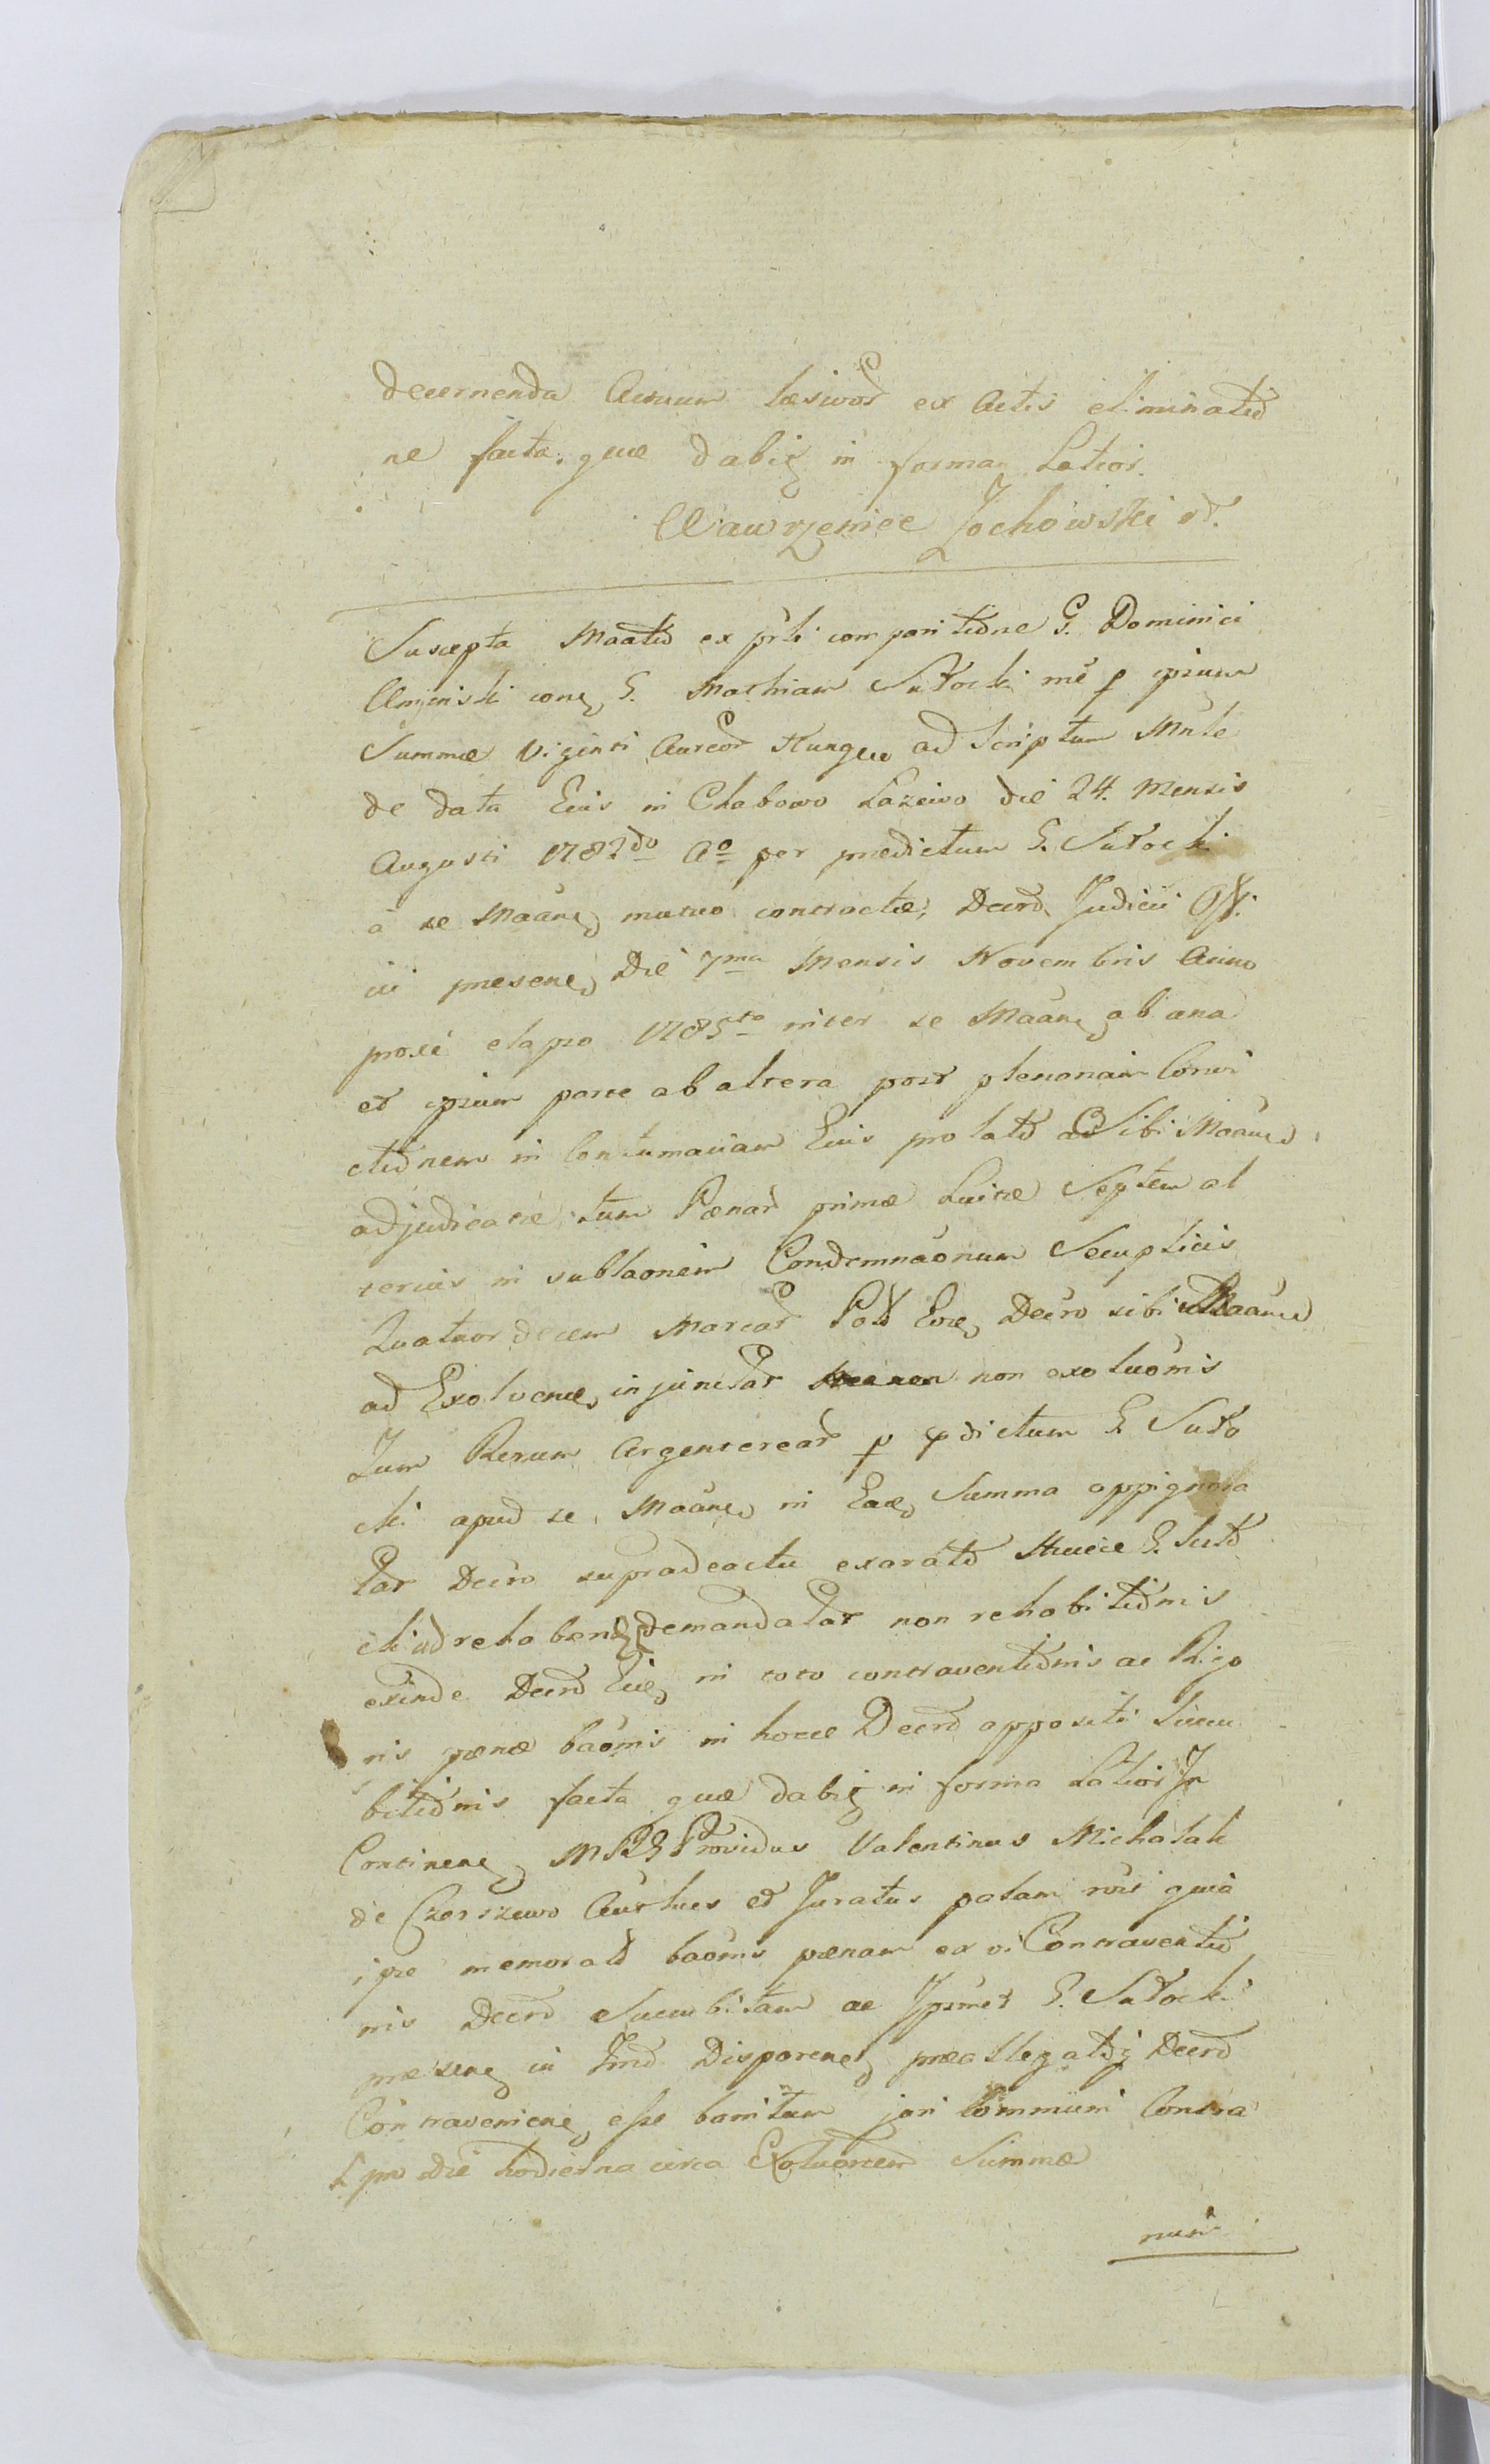 decernenda Actuum læsivor ex Actis eliminatio
ne facta. quæ dabit in forma Latior.
Wawrzeniec Zochowski
Suscepta Maatio ex prli comparitione G. Dominici
Uminski conq G. Mathiam Sutocki me p ipsum
Summæ Viginti Aureor Hungar ad Scriptum Mnle
de data Eius in Chabowo Łazewo die 24. Mensis
Augusti 1782do Ao per prædictum G. Sutocki
a se Maane mutuo contractæ, Decro Judicii Offi
cii præsene Die 7ma Mensis Novembris Anno
proxe elapso 1785to inter se Maane ab una
et ipsum parte ab altera post plenariam Convi
ctionem in Contumaciam Eius prolato ac Sibi Maane
adjudicatæ, tum Pœnar primæ Luitæ Septem al
terius in sublaonem Condemnaonum Secuplicis
Quatuordecem Marcar Pol Eoe Decro sibi Maane
ad Exolvene injunctar non exoluonis
Tum Rerum Argenterear p ipdictum G. Suto
cki apud se Maane in Eae Summa oppignora
tar Decro supradeactu exarato Huicce G. Suto
cki ad rehabene demandatar non rehabitionis
exinde Decro Eie in toto contraventionis ac Rigo
ris pœnæ baonis in hocce Decro appositi Succu
bitionis facta quæ dabit in forma Latior In
Continene MRG Providus Valentinus Michalak
de Czerszewo Aurhues et Juratus palam rois quia
ipse memorato baonis pœnam ex vi Contraventio
nis Decro Sucubitam ac Ipsmet G. Sutocki
præsene in Imo Disparene præallegatoq Decro
Contraveniene, esse banitum juri Communi Contra
L pm die hodierna circa Exoluonem Summæ